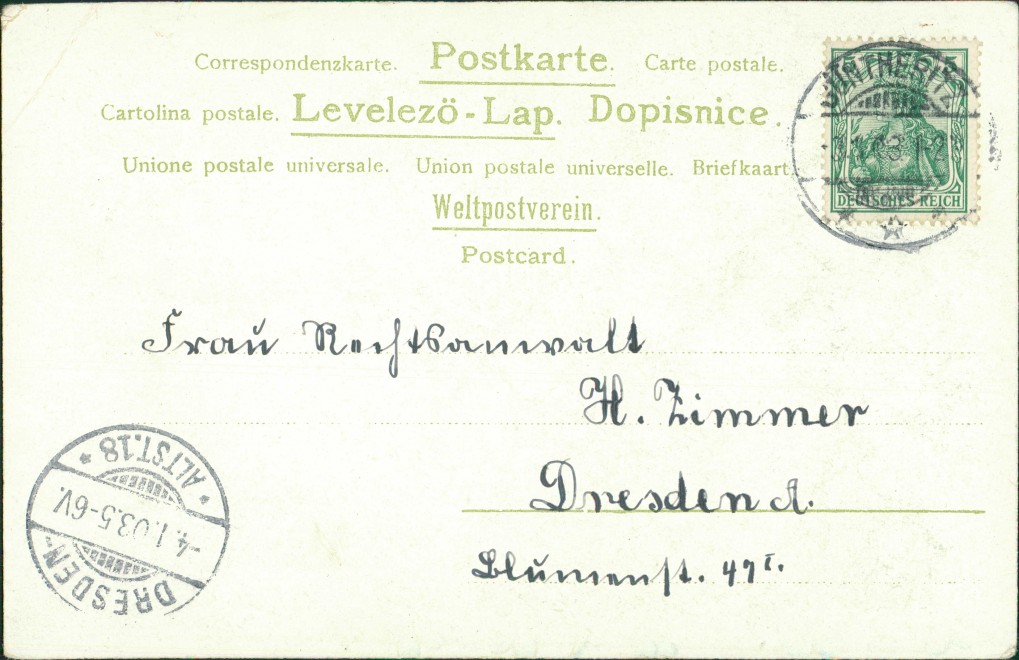 Correspondenzkarte. Postkarte. Carte postale.
Cartolina postale. Levelezö-Lap. Dopisnice.
Unione postale universale. Union postale universelle. Briefkaart.
Weltpostverein.
Postcard.
DEUTSCHES REICH
Frau Rechtsanwalt
H. Zimmer
Dresden A.
Blumenst. 47 I.
DRESDEN-
-4.1.03.5-6V.
* ALTST.18 *